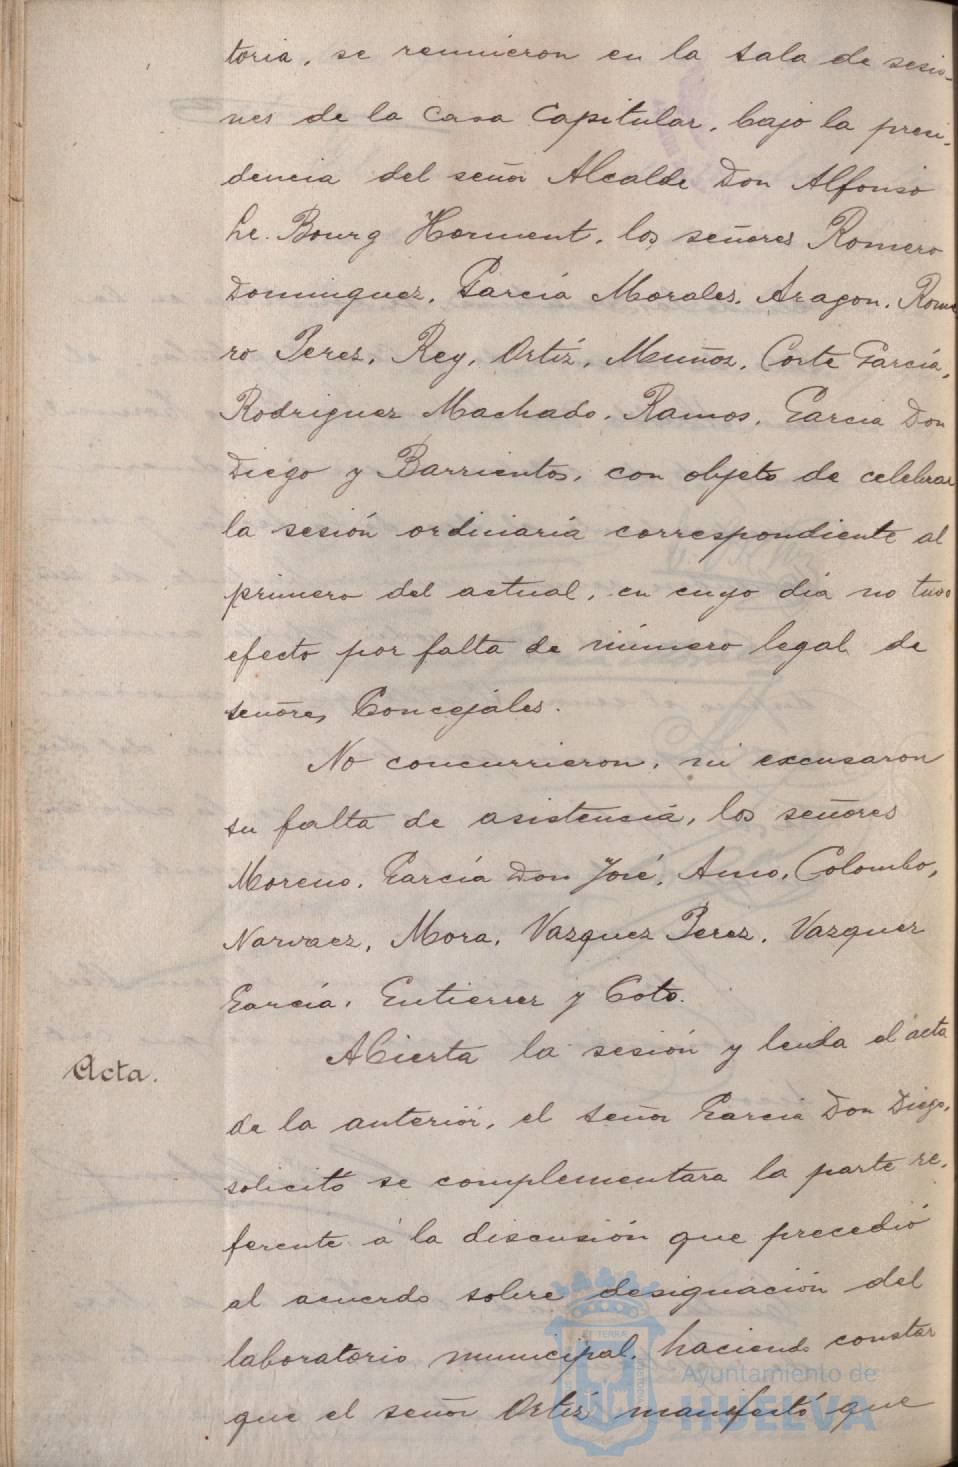 toria, se reunieron en la sala de sesio-
nes de la Casa Capitular, bajo la presi-
dencia del señor Alcalde Don Alfonso
Le. Bourg Horment, los señores Romero
Dominguez, García Morales, Aragon, Rome
ro Perez, Rey, Ortíz, Muñoz, Corte García,
Rodriguez Machado, Ramos, Garcia Don
Diego y Barrientos, con objeto de celebrar
la sesión ordinaria correspondiente al
primero del actual, en cuyo dia no tuvo
efecto por falta de número legal de
señores Concejales.
No concurrieron, ni excusaron
su falta de asistencia, los señores
Moreno, García Don José, Amo, Colombo,
Narvaez, Mora, Vazquez Perez, Vazquez
García, Gutierrez y Coto.
Acta.
Abierta la sesión y leida el acta
de la anterior, el señor Garcia Don Diego,
solicitó se complementara la parte re-
ferente á la discusión que precedió
al acuerdo sobre designación del
laboratorio municipal, haciendo constar
que el señor Ortíz manifestó que
Ayuntamiento de
HUELVA